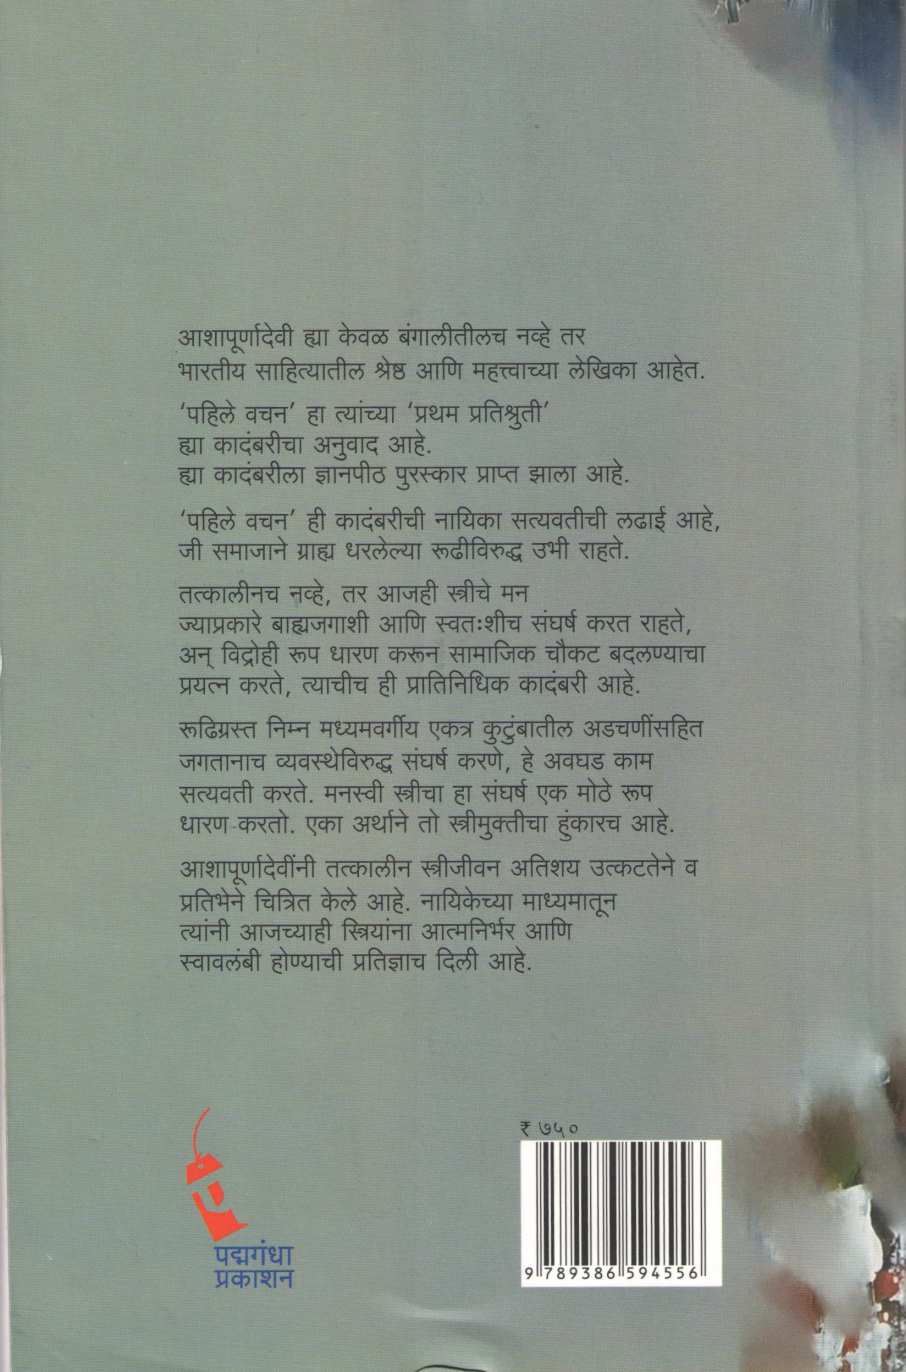 आशापूर्णादेवी ह्या केवळ बंगालीतीलच नव्हे तर
भारतीय साहित्यातील श्रेष्ठ आणि महत्त्वाच्या लेखिका आहेत.
‘पहिले वचन’ हा त्यांच्या ‘प्रथम प्रतिश्रुती’
ह्या कादंबरीचा अनुवाद आहे.
ह्या कादंबरीला ज्ञानपीठ पुरस्कार प्राप्त झाला आहे.
‘पहिले वचन’ ही कादंबरीची नायिका सत्यवतीची लढाई आहे,
जी समाजाने ग्राह्य धरलेल्या रूढीविरुद्ध उभी राहते.
तत्कालीनच नव्हे, तर आजही स्त्रीचे मन
ज्याप्रकारे बाह्यजगाशी आणि स्वतःशीच संघर्ष करत राहते,
अन् विद्रोही रूप धारण करून सामाजिक चौकट बदलण्याचा
प्रयत्न करते, त्याचीच ही प्रातिनिधिक कादंबरी आहे.
रूढिग्रस्त निम्न मध्यमवर्गीय एकत्र कुटुंबातील अडचणींसहित
जगतानाच व्यवस्थेविरुद्ध संघर्ष करणे, हे अवघड काम
सत्यवती करते. मनस्वी स्त्रीचा हा संघर्ष एक मोठे रूप
धारण करतो. एका अर्थाने तो स्त्रीमुक्तीचा हुंकारच आहे.
आशापूर्णादेवींनी तत्कालीन स्त्रीजीवन अतिशय उत्कटतेने व
प्रतिभेने चित्रित केले आहे. नायिकेच्या माध्यमातून
त्यांनी आजच्याही स्त्रियांना आत्मनिर्भर आणि
स्वावलंबी होण्याची प्रतिज्ञाच दिली आहे.
₹ ७५०
9 789386 594556
पद्मगंधा
प्रकाशन